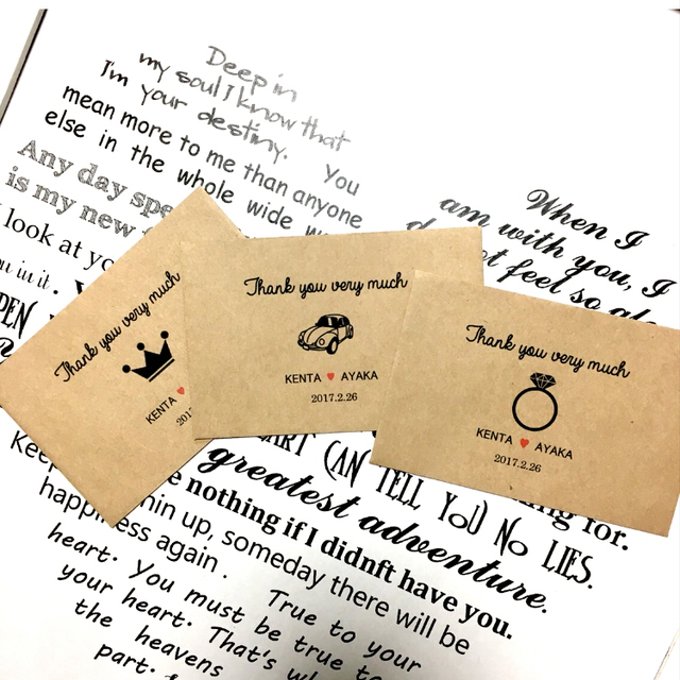 Deep in
my soul I know that
I'm your destiny. You
mean more to me than anyone
else in the whole wide
Any day
is my new
look at
in it.
When I
am with you, I
feel so
Thank you very much
KENTA ♥
Thank you very much
KENTA ♥ AYAKA
2017.2.26
Thank you very much
KENTA ♥ AYAKA
2017.2.26
CAN TELL YOU NO LIES.
for.
greatest adventure.
nothing if I didnft have you.
up, someday there will be
happiness again. True to your
heart. You must be true to
your heart. That's
the heavens
part.